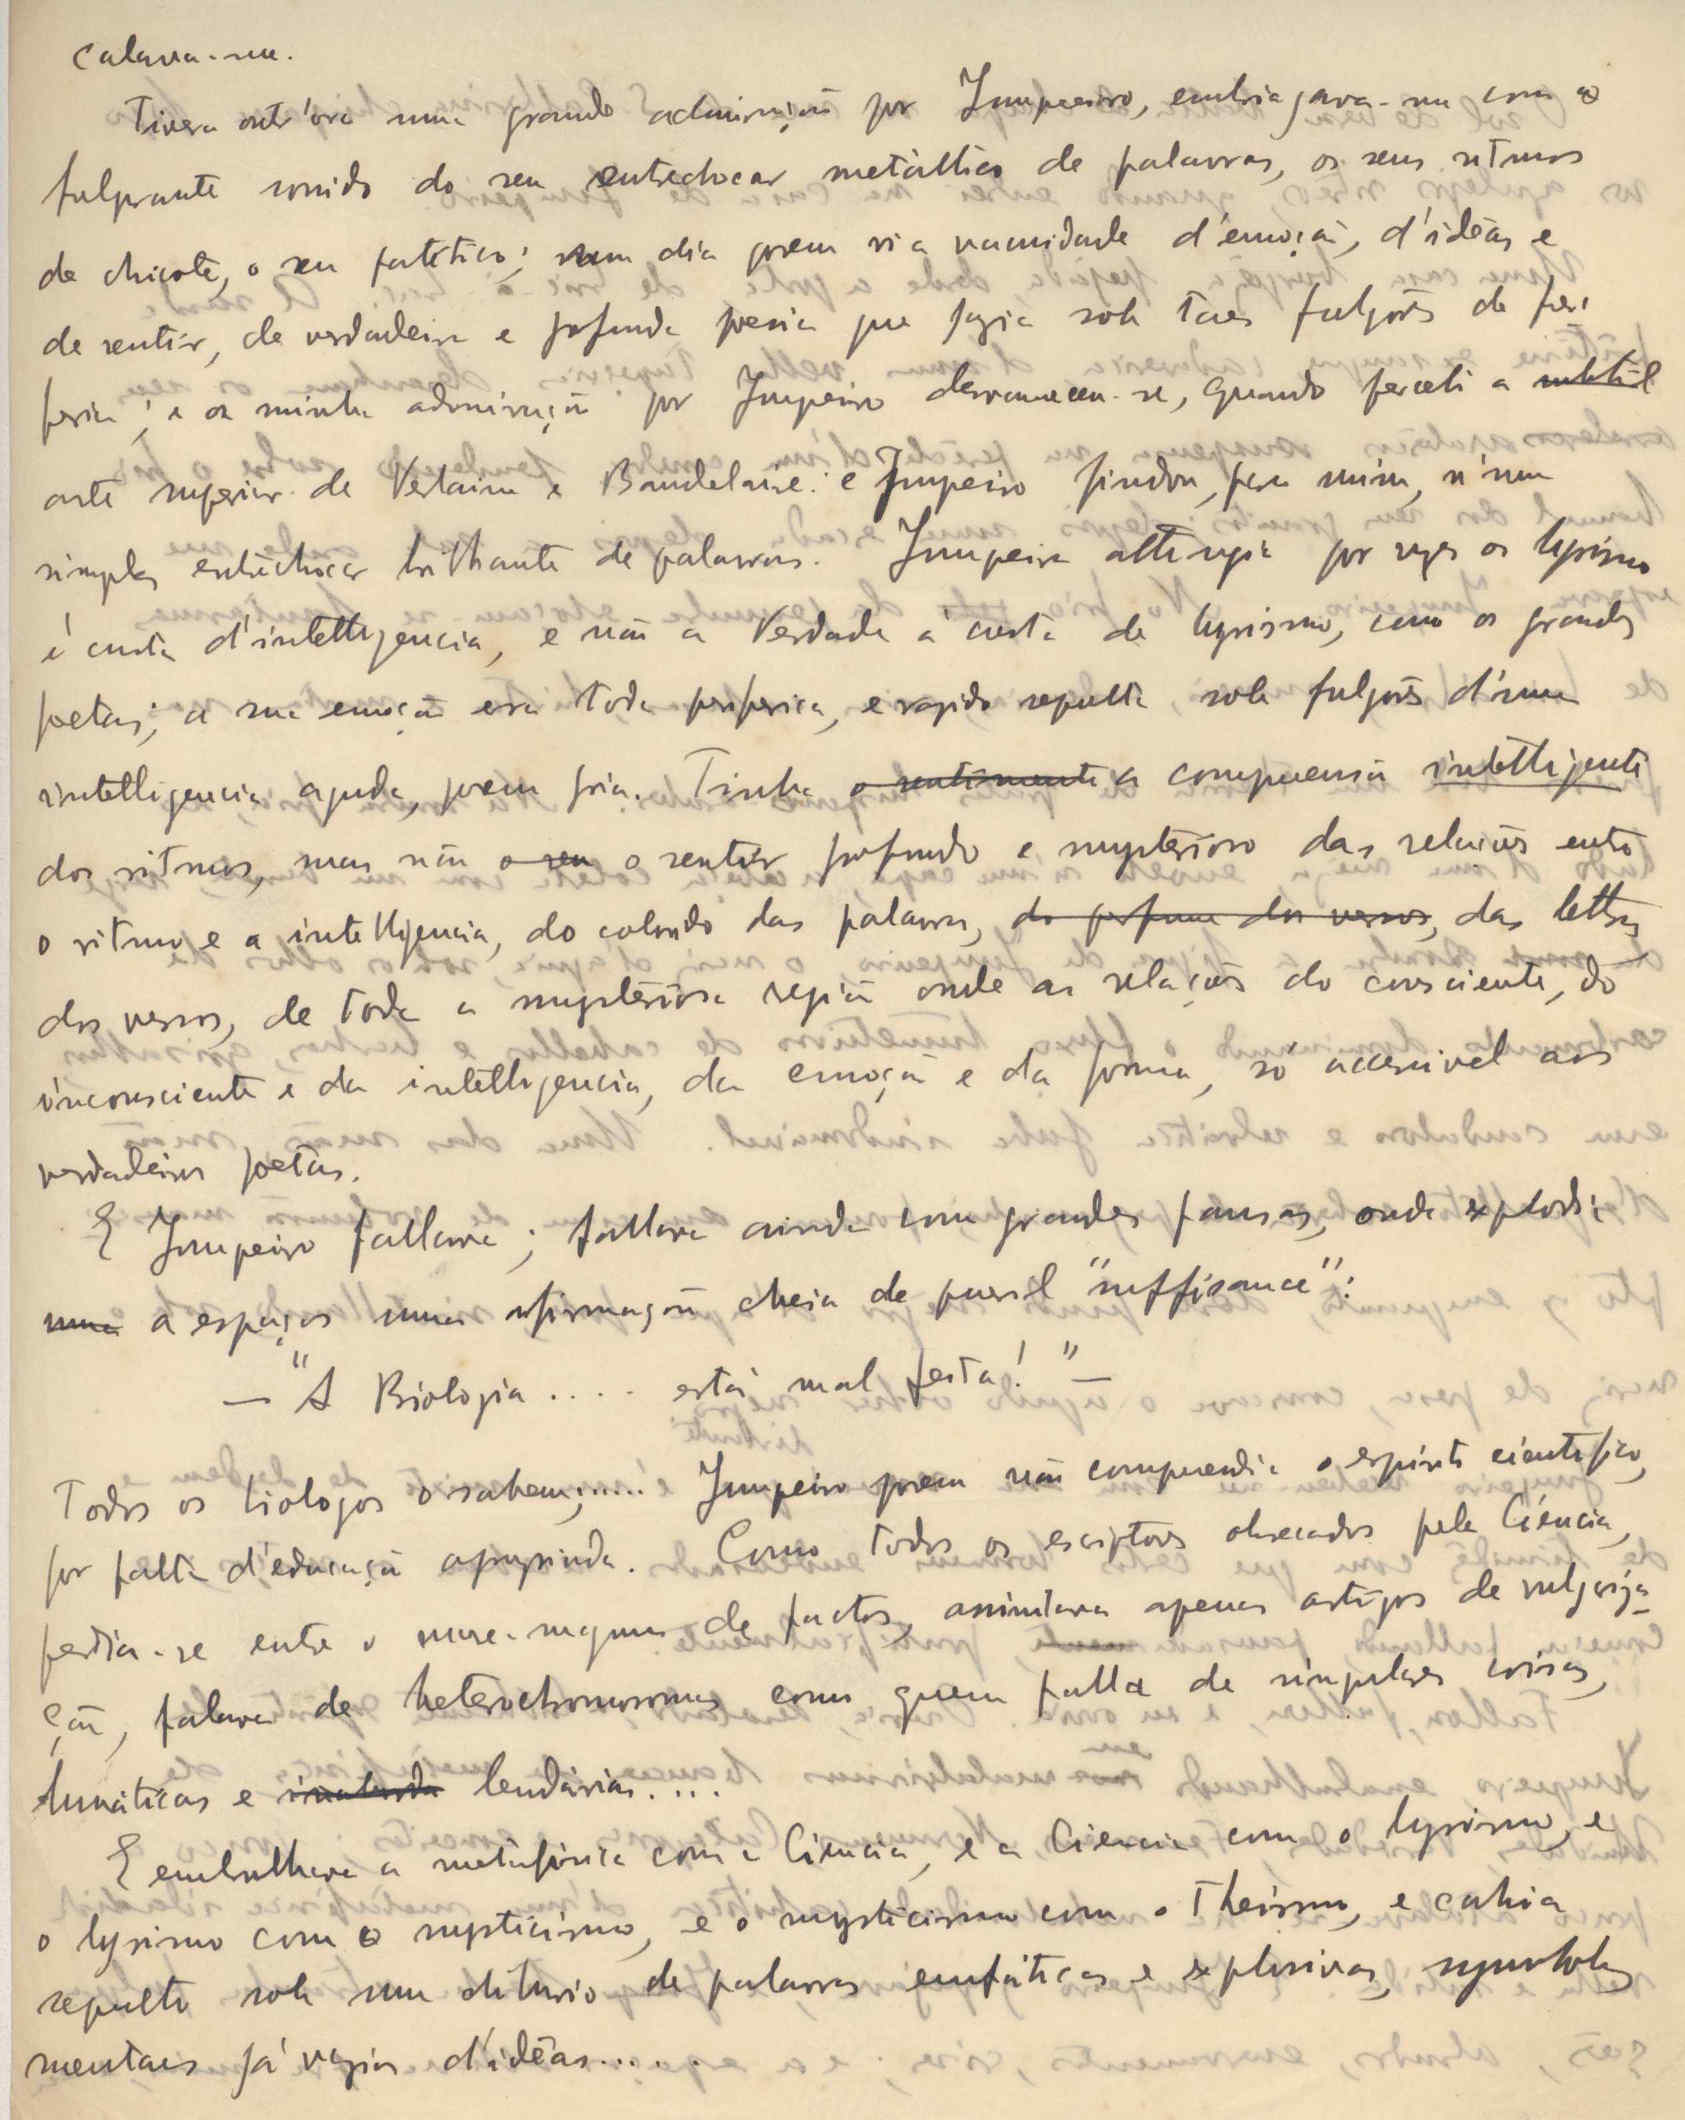 calava-me.
Tivera outr'ora uma grande admiração por Junqueiro, embriagava-me com o
fulgurante sonido do seu entrechocar metàllico de palavras, os seus ritmos
de chicote, o seu patético; num dia porem vi a vacuidade d'emoção, d'idêas e
de sentir, de verdadeira e profunda poesia que jazia sob taes fulgôres de peri
feria; e a minha admiração por Junqueiro desvaneceu-se, quando percebi a subtil
arte superior de Verlaine e Baudelaire: e Junqueiro findou, pera mim, n'um
simples entrechocar brilhante de palavras. Junqueiro attingia por vezes o lyrismo
á custa d'intelligencia, e não a Verdade á custa de lyrismo, como os grandes
poetas; a sua emoção era toda periferica, e rapido sepulta sob fulgôres d'uma
intelligencia aguda, porem fria. Tinha o sentimento a compreensão intelligente
dos ritmos, mas não o seu o sentir profundo e mysterioso das relações entre
o ritmo e a intelligencia, do colorido das palavras, do perfume dos versos, das lettras
dos versos, de toda a mysteriosa região onde as relações do consciente, do
inconsciente e da intelligencia, da emoção e da forma, só accessivel aos
verdadeiros poetas.
E Junqueiro fallava; fallava ainda com grandes pausas, onde explodia
uma a espaços uma afirmação cheia de pueril "suffisance":
— "A Biologia .... está mal feita!" —
Todos os biologos o sabem;..... Junqueiro porem não compreendia o espirito cientifico,
por falta d'educação apropriada. Como todos os escriptores obsecados pela Ciência,
perdia-se entre o mare-magnum de factos, assimilava apenas artigos de vulgariza-
ção, falava de heterochromosomas como quem falla de singulares coisas,
lunáticas e lendárias....
E embrulhava a metafisica com a Ciência, e a Ciencia com o lyrismo, e
o lyrismo com o mysticismo, e o mysticismo com o Theismo, e cahia
sepulto sob um diluvio de palavras emfáticas e explosivas, symbolos
mentaes já vazios d'idêas.....